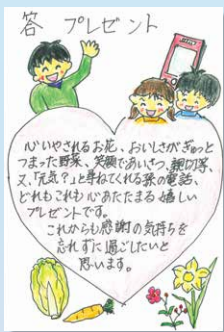 答 プレゼント
心いやされるお花、おいしさがぎゅっと
つまった野菜、笑顔であいさつ、親切等、
又、「元気?」と尋ねてくれる孫の電話、
どれもこれも心あたたまる嬉しい
プレゼントです。
これからも感謝の気持ちを
忘れずに過ごしたいと
思います。